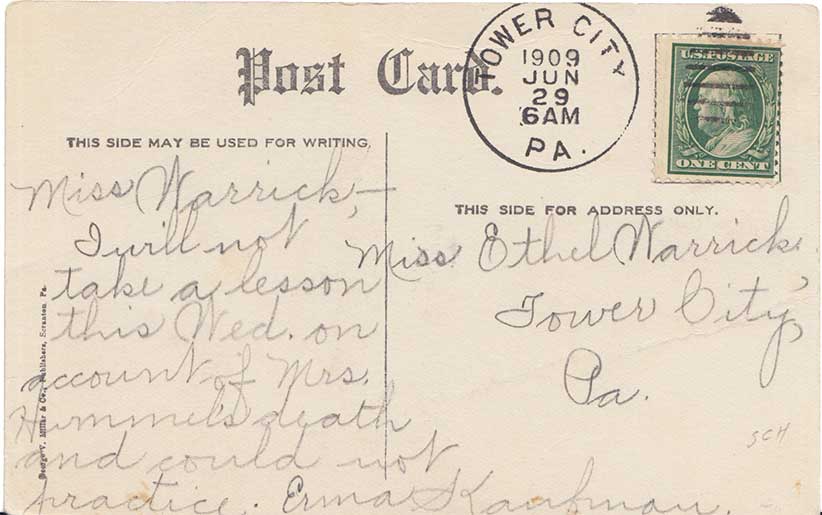 Post Card.
TOWER CITY
1909
JUN
29
6AM
PA.
U.S. POSTAGE
ONE CENT
THIS SIDE MAY BE USED FOR WRITING.
THIS SIDE FOR ADDRESS ONLY.
Miss Warrick,—
I will not
take a lesson
this Wed. on
account of Mrs.
Hummel's death
and could not
practice. Erma Kaufman.
Miss Ethel Warrick
Tower City,
Pa.
SCH
George V. Millar & Co., Publishers, Scranton, Pa.